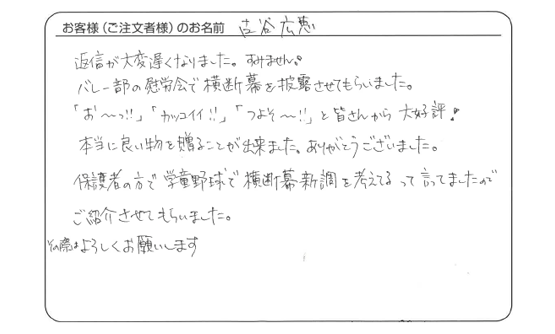 お客様(ご注文者様)のお名前 古谷 広恵
返信が大変遅くなりました。すみません。
バレー部の慰労会で横断幕を披露させてもらいました。
「お〜っ!!」「カッコイイ!!」「つよそ〜!!」と皆さんから大好評!
本当に良い物を贈ることが出来ました。ありがとうございました。
保護者の方で学童野球で横断幕新調を考えてるって言ってましたので
ご紹介させてもらいました。
その際はよろしくお願いします